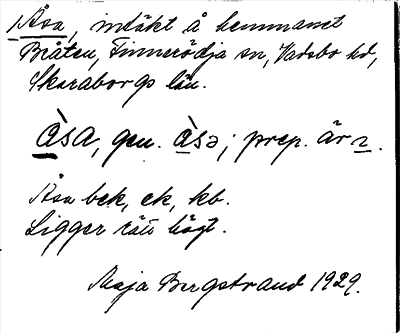 Åsa, intäkt å hemmanet
Bråten, Finnerödja sn, Vadsbo hd,
Skaraborgs län.
àsa, gen. àsə; prep. är
Åsa bck, ek, kb.
Ligger rätt högt.
Maja Bergstrand 1929.